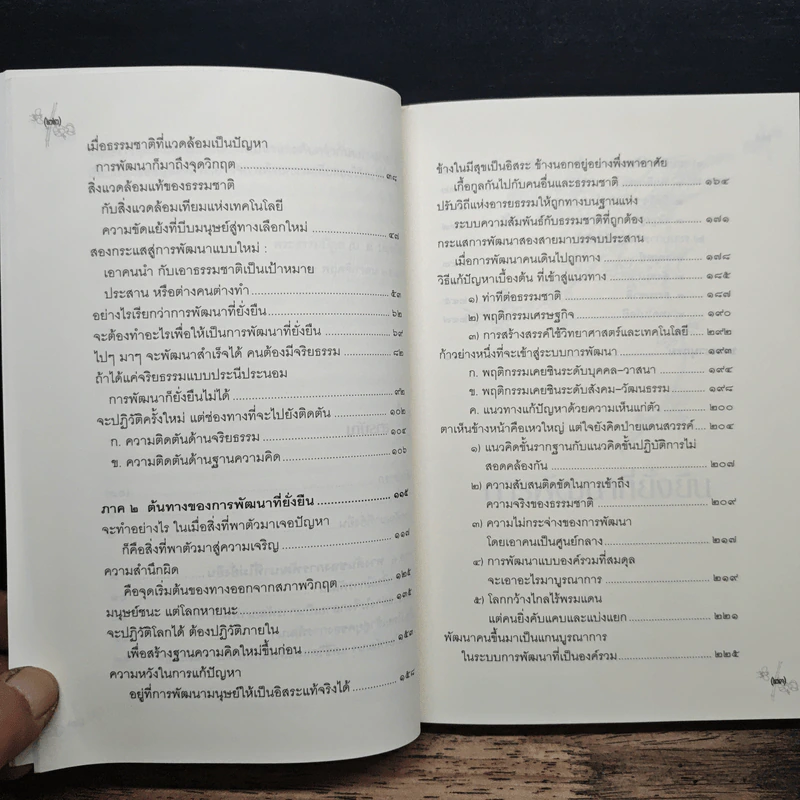 (๒๒)
เมื่อธรรมชาติที่แวดล้อมเป็นปัญหา
การพัฒนาก็มาถึงจุดวิกฤต ๓๘
สิ่งแวดล้อมแท้ของธรรมชาติ
กับสิ่งแวดล้อมเทียมแห่งเทคโนโลยี
ความขัดแย้งที่บีบมนุษย์สู่ทางเลือกใหม่ ๔๘
สองกระแสสู่การพัฒนาแบบใหม่ :
เอาคนนำ กับเอาธรรมชาติเป็นเป้าหมาย
ประสาน หรือต่างคนต่างทำ ๕๓
อย่างไรเรียกว่าการพัฒนาที่ยั่งยืน ๖๒
จะต้องทำอะไรเพื่อให้เป็นการพัฒนาที่ยั่งยืน ๖๙
ไปๆ มาๆ จะพัฒนาสำเร็จได้ คนต้องมีจริยธรรม ๘๒
ถ้าได้แค่จริยธรรมแบบประนีประนอม
การพัฒนาก็ยั่งยืนไม่ได้ ๙๒
จะปฏิวัติครั้งใหม่ แต่ช่องทางที่จะไปยังติดตัน ๑๐๒
ก. ความติดตันด้านจริยธรรม ๑๐๔
ข. ความติดตันด้านฐานความคิด ๑๐๖
ภาค ๒ ต้นทางของการพัฒนาที่ยั่งยืน ๑๑๕
จะทำอย่างไร ในเมื่อสิ่งที่พาตัวมาเจอปัญหา
ก็คือสิ่งที่พาตัวมาสู่ความเจริญ ๑๑๗
ความสำนึกผิด
คือจุดเริ่มต้นของทางออกจากสภาพวิกฤต ๑๒๕
มนุษย์ชนะ แต่โลกหายนะ ๑๓๕
จะปฏิวัติโลกได้ ต้องปฏิวัติภายใน
เพื่อสร้างฐานความคิดใหม่ขึ้นก่อน ๑๕๓
ความหวังในการแก้ปัญหา
อยู่ที่การพัฒนามนุษย์ให้เป็นอิสระแท้จริงได้ ๑๕๘
ข้างในมีสุขเป็นอิสระ ข้างนอกอยู่อย่างพึ่งพาอาศัย
เกื้อกูลกันไปกับคนอื่นและธรรมชาติ ๑๖๔
ปรับวิถีแห่งอารยธรรมให้ถูกทางบนฐานแห่ง
ระบบความสัมพันธ์กับธรรมชาติที่ถูกต้อง ๑๗๑
กระแสการพัฒนาสองสายมาบรรจบประสาน
เมื่อการพัฒนาคนเดินไปถูกทาง ๑๗๘
วิธีแก้ปัญหาเบื้องต้น ที่เข้าสู่แนวทาง ๑๘๕
๑) ท่าทีต่อธรรมชาติ ๑๘๗
๒) พฤติกรรมเศรษฐกิจ ๑๙๐
๓) การสร้างสรรค์ใช้วิทยาศาสตร์และเทคโนโลยี ๒๙๒
ก้าวย่างหนึ่งที่จะเข้าสู่ระบบการพัฒนา ๑๙๓
ก. พฤติกรรมเคยชินระดับบุคคล-วาสนา ๑๙๔
ข. พฤติกรรมเคยชินระดับสังคม-วัฒนธรรม ๑๙๘
ค. แนวทางแก้ปัญหาด้วยความเห็นแก่ตัว ๒๐๐
ตาเห็นข้างหน้าคือเหวใหญ่ แต่ใจยังคิดป่ายแดนสวรรค์ ๒๐๔
๑) แนวคิดขั้นรากฐานกับแนวคิดขั้นปฏิบัติการไม่
สอดคล้องกัน ๒๐๗
๒) ความสับสนติดขัดในการเข้าถึง
ความจริงของธรรมชาติ ๒๐๙
๓) ความไม่กระจ่างของการพัฒนา
โดยเอาคนเป็นศูนย์กลาง ๒๑๗
๔) การพัฒนาแบบองค์รวมที่สมดุล
จะเอาอะไรมาบูรณาการ ๒๑๙
๕) โลกกว้างไกลไร้พรมแดน
แต่คนยิ่งคับแคบและแบ่งแยก ๒๒๑
พัฒนาคนขึ้นมาเป็นแกนบูรณาการ
ในระบบการพัฒนาที่เป็นองค์รวม ๒๒๕
(๒๓)